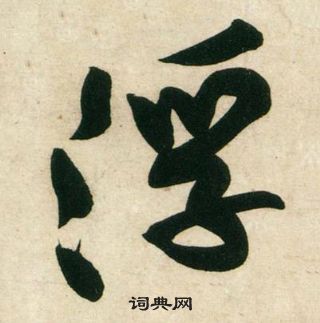 浮
词典网